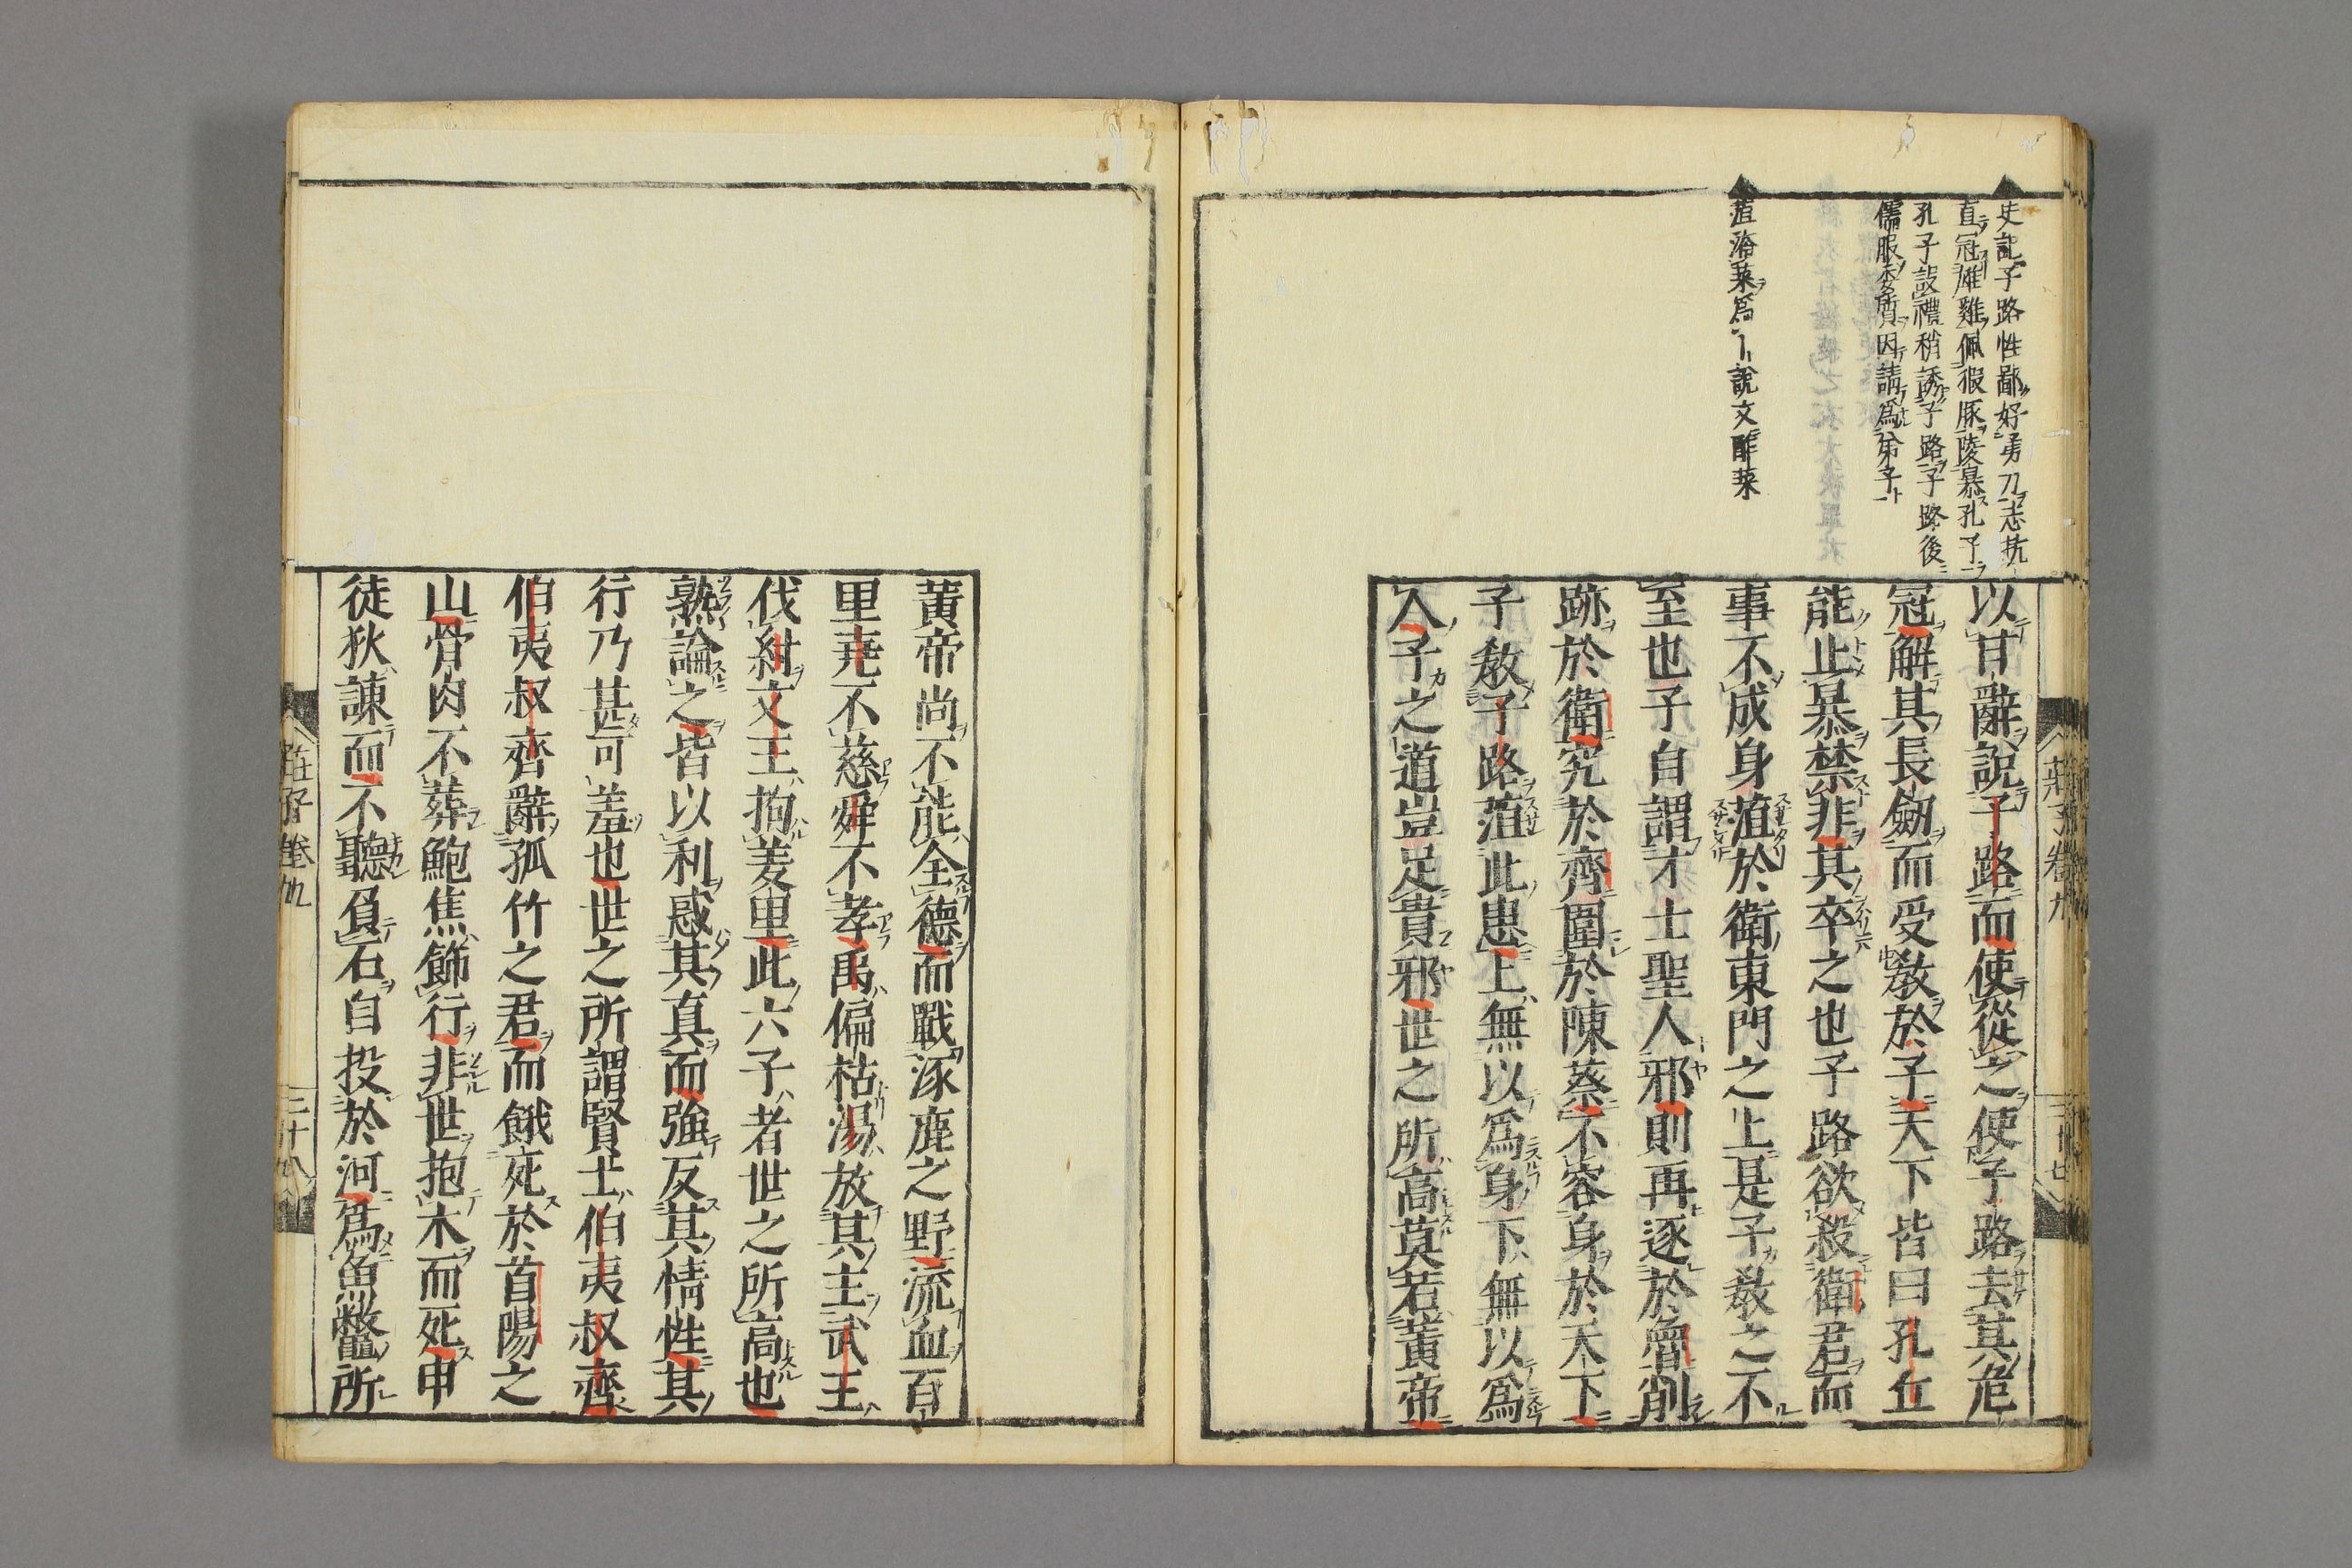 史記子路性鄙好勇力志抗
直冠雄雞佩猳豚陵暴孔子
孔子設禮稍誘子路子路後
儒服委質因請爲弟子
菹淹菜爲 說文酢菜
以甘辭說子路而使從之使子路去其危
冠解其長劔而受敎於子天下皆曰孔丘
能止暴禁非其卒之也子路欲殺衛君而
事不成身菹於衛東門之上是子敎之不
至也子自謂才士聖人邪則再逐於魯削
跡於衛窮於齊圍於陳蔡不容身於天下
子敎子路菹此患上無以爲身下無以爲
人子之道豈足貴邪世之所高莫若黃帝
莊子卷九
黃帝尚不能全德而戰涿鹿之野流血百
里堯不慈舜不孝禹偏枯湯放其主武王
伐紂文王拘羑里此六子者世之所高也
熟論之皆以利惑其真而強反其情性其
行乃甚可羞也世之所謂賢士伯夷叔齊
伯夷叔齊辭孤竹之君而餓死於首陽之
山骨肉不葬鮑焦飾行非世抱木而死申
徒狄諫而不聽負石自投於河爲魚鼈所
莊子卷九
三十八